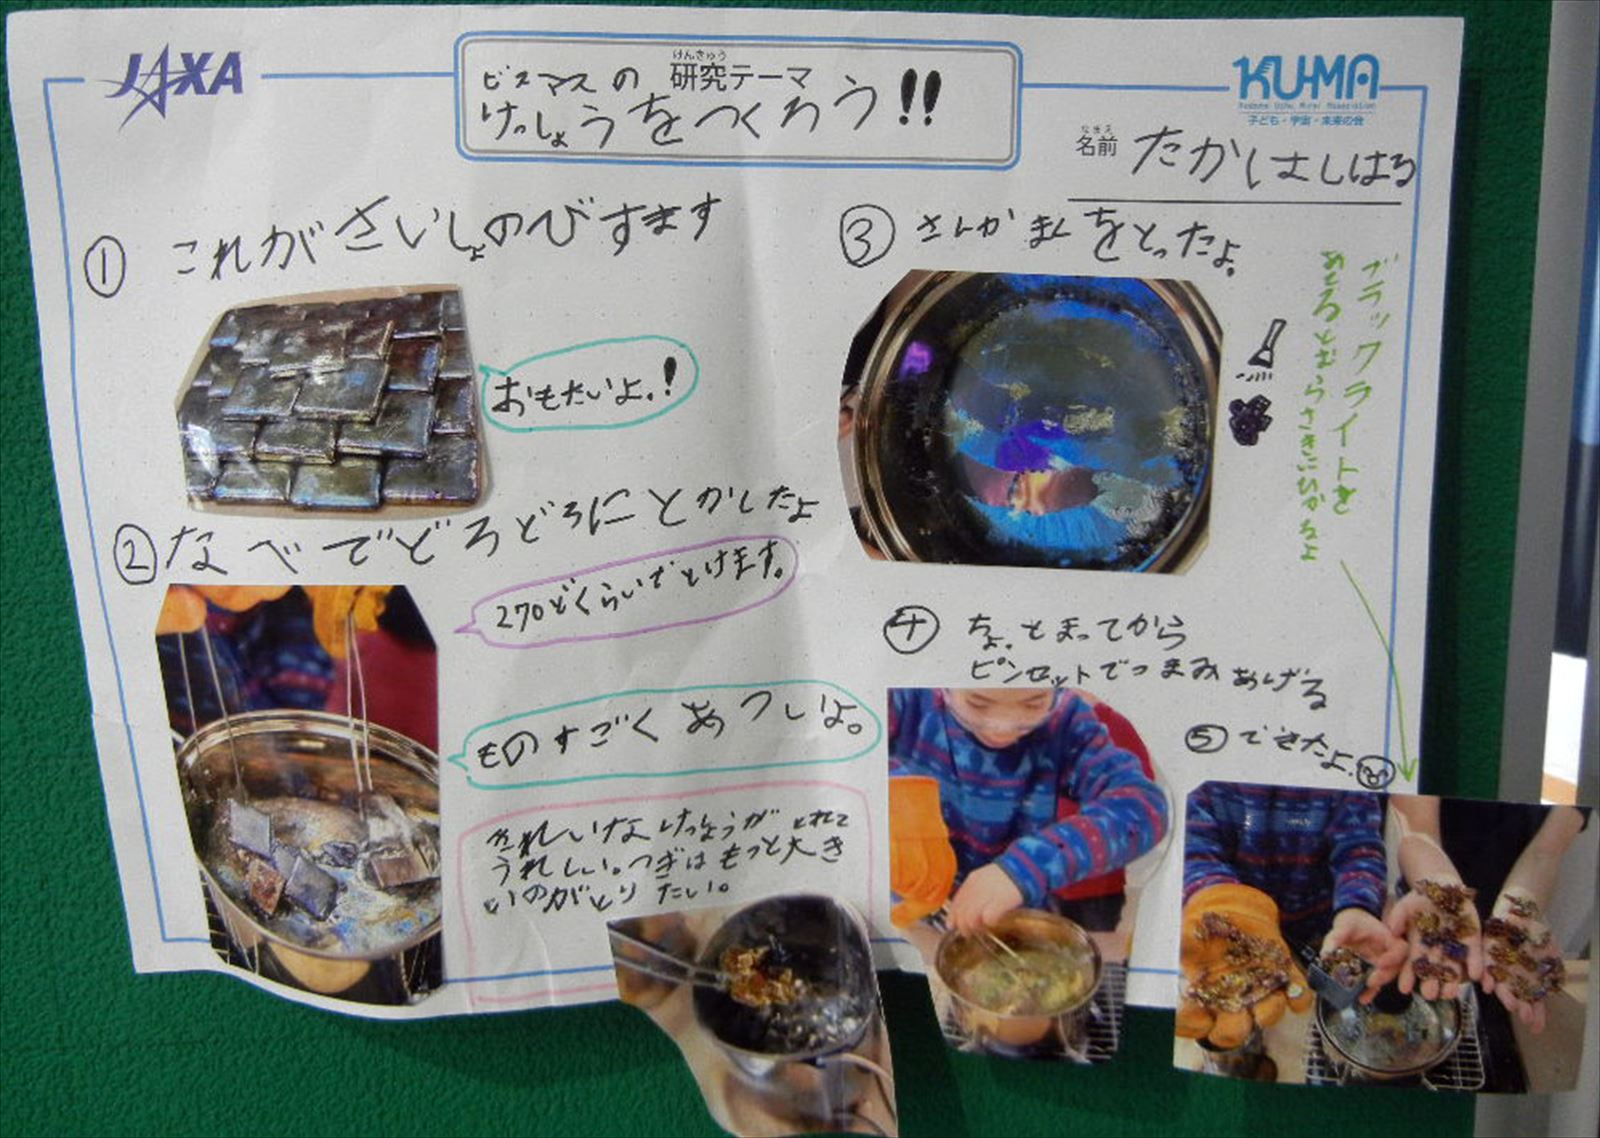 JAXA
けんきゅう
研究テーマ
ビスマスの
けっしょうをつくろう!!
KUMA
Kodomo Uchu Mirai Association
子ども・宇宙・未来の会
なまえ
名前 たかはしはる
① これがさいしょのびすます
おもたいよ。!
② なべでどろどろにとかしたよ
270どくらいでとけます。
ものすごくあついよ。
きれいなけっしょうがとれて
うれしい。つぎはもっと大き
いのがとりたい。
③ さんかまくをとったよ。
ブラックライトを
あてるとむらさきにひかるよ
④ ちょっとまってから
ピンセットでつまみあげる
⑤ できたよ。